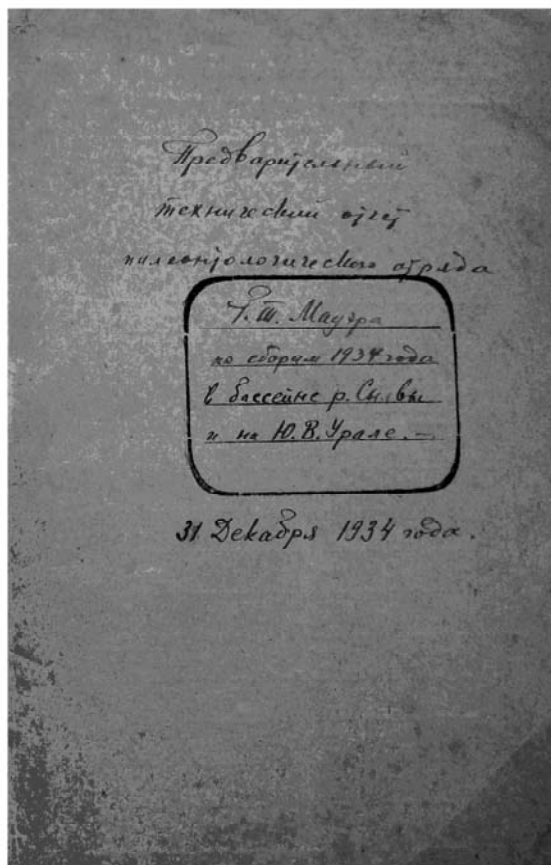 Предварительный
технический отчет
палеонтологического отряда
Г. Т. Мауэра
по сборам 1934 года
в бассейне р. Сылвы
и на Ю. В. Урале. —
31 Декабря 1934 года.